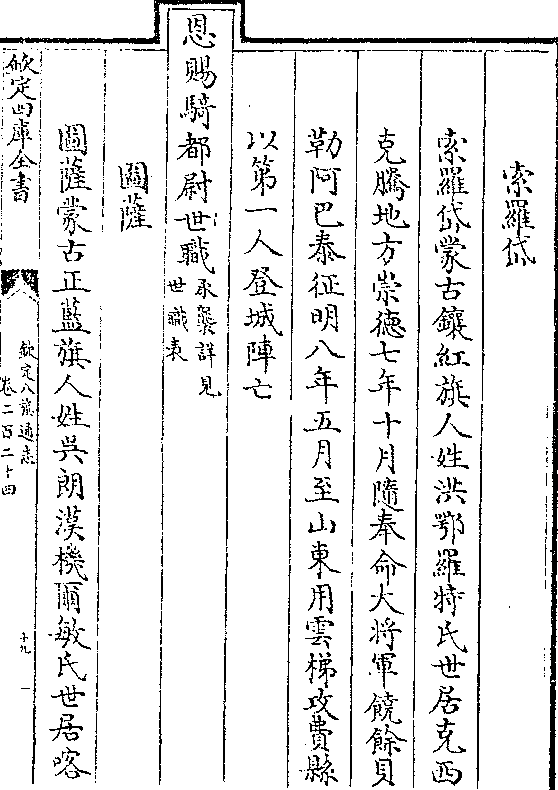 索羅岱
索羅岱蒙古鑲紅旗人姓洪鄂羅特氏世居克西
克騰地方崇德七年十月隨奉命大將軍饒餘貝
勒阿巴泰征明八年五月至山東用雲梯攻費縣
以第一人登城陣亡
恩賜騎都尉世職承襲詳見
世職表
圖薩
圖薩蒙古正藍旗人姓吳朗漠機爾敏氏世居喀
欽定四庫全書
欽定八旗通志
卷二百二十四
十九